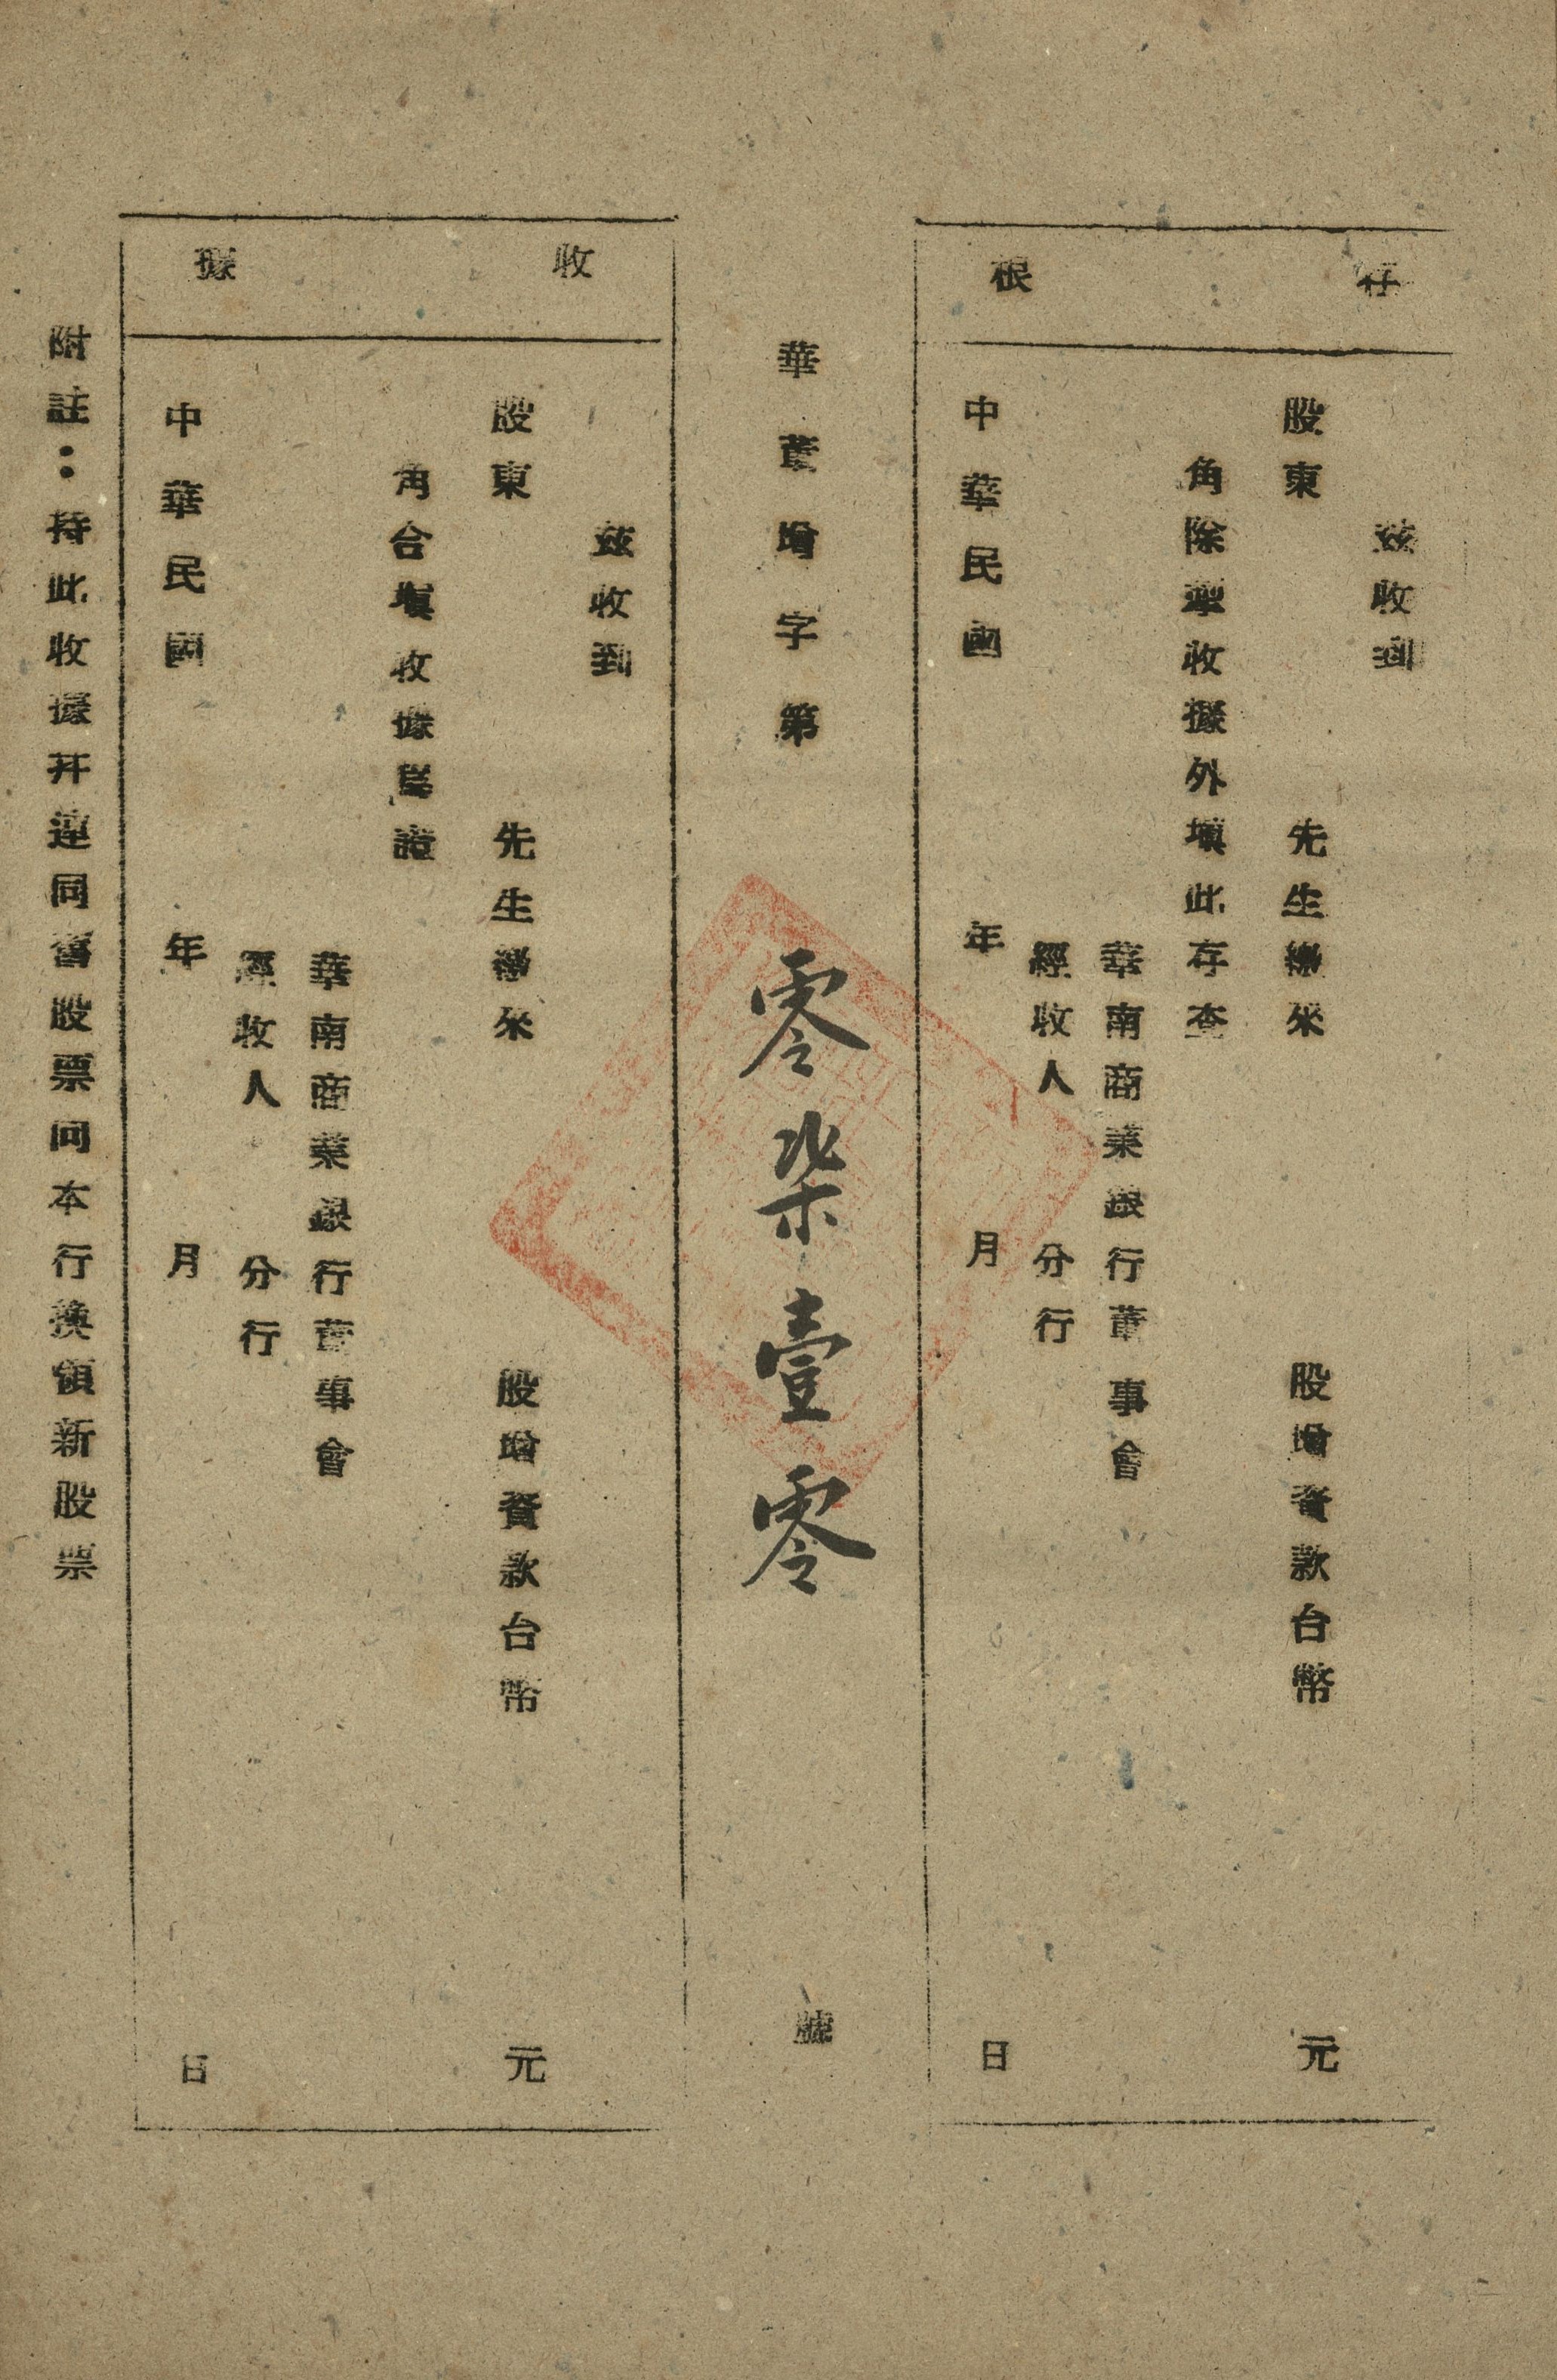 存根
茲收到
股東 先生繳來 股增資款台幣 元
角除掣收據外填此存查
華南商業銀行董事會
經收人 分行
中華民國 年 月 日
華董增字第 零柒壹零 號
收據
茲收到
股東 先生繳來 股增資款台幣 元
角合填收據爲證
華南商業銀行董事會
經收人 分行
中華民國 年 月 日
附註：持此收據幷連同舊股票向本行換領新股票